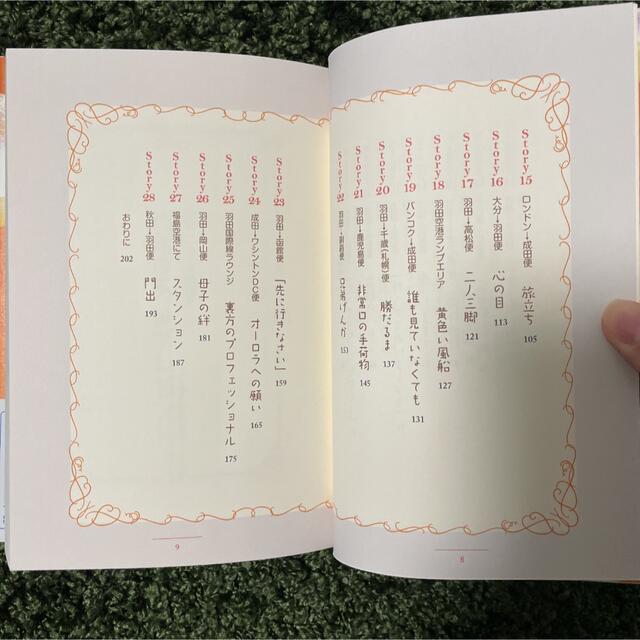 Story 15
ロンドン→成田便
旅立ち
105
Story 16
大分→羽田便
心の目
113
Story 17
羽田→高松便
二人三脚
121
Story 18
羽田空港ランプエリア
黄色い風船
127
Story 19
バンコク→成田便
誰も見ていなくても
131
Story 20
羽田→千歳(札幌)便
勝だるま
137
Story 21
羽田→鹿児島便
非常口の手荷物
145
Story 22
羽田→釧路便
兄弟げんか
151
8
Story 23
羽田→函館便
「先に行きなさい」
159
Story 24
成田→ワシントンDC便
オーロラへの願い
165
Story 25
羽田国際線ラウンジ
裏方のプロフェッショナル
175
Story 26
羽田→岡山便
母子の絆
181
Story 27
福島空港にて
スタンション
187
Story 28
秋田→羽田便
門出
193
おわりに
202
9